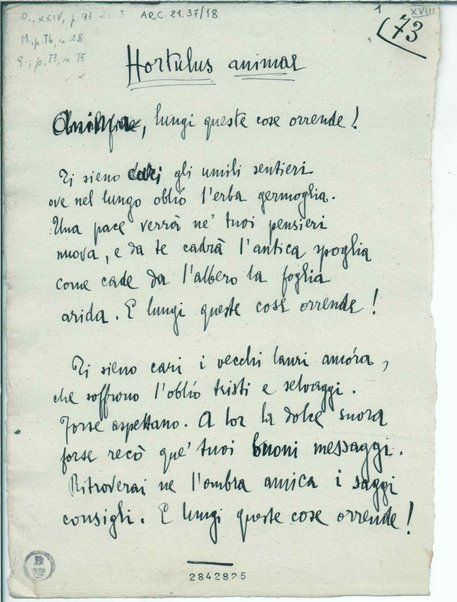 D., XXIV, p. 93
ARC. 21.37/18
1
XVIII
M., p. 76, n. 28
73
Q., p. 73, n. 75
Hortulus animae
, lungi queste cose orrende!
Ti sieno cari gli umili sentieri
ove nel lungo oblìo l'erba germoglia.
Una pace verrà ne' tuoi pensieri
nuova, e da te cadrà l'antica spoglia
come cade da l'albero la foglia
arida. E lungi queste cose orrende!
Ti sieno cari i vecchi lauri ancóra,
che soffrono l'oblìo tristi e selvaggi.
Forse aspettano. A lor la dolce suora
forse recò que' tuoi buoni messaggi.
Ritroverai ne l'ombra amica i saggi
consigli. E lungi queste cose orrende!
2842825